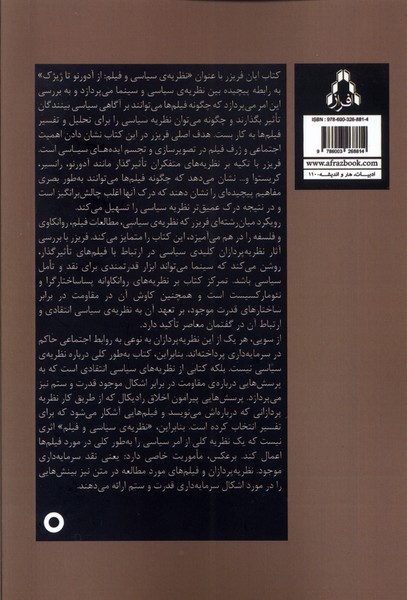 کتاب ایان فریزر با عنوان «نظریه‌ی سیاسی و فیلم: از آدورنو تا ژیژک»
به رابطه پیچیده بین نظریه‌ی سیاسی و سینما می‌پردازد و به بررسی
این امر می‌پردازد که چگونه فیلم‌ها می‌توانند بر آگاهی سیاسی بینندگان
تأثیر بگذارند و چگونه می‌توان نظریه سیاسی را برای تحلیل و تفسیر
فیلم‌ها به کار بست. هدف اصلی فریزر در این کتاب نشان دادن اهمیت
اجتماعی و ژرف فیلم در تصویرسازی و تجسم ایده‌های سیاسی است.
فریزر با تکیه بر نظریه‌های متفکران تأثیرگذار مانند آدورنو، رانسیر،
کریستوا و... نشان می‌دهد که چگونه فیلم‌ها می‌توانند به‌طور بصری
مفاهیم پیچیده‌ای را نشان دهند که درک آنها اغلب چالش‌برانگیز است
و در نتیجه درک عمیق‌تر نظریه سیاسی را تسهیل می‌کند.
رویکرد میان‌رشته‌ای فریزر که نظریه‌ی سیاسی، مطالعات فیلم، روانکاوی
و فلسفه را در هم می‌آمیزد، این کتاب را متمایز می‌کند. فریزر با بررسی
آثار نظریه‌پردازان کلیدی سیاسی در ارتباط با فیلم‌های تأثیرگذار،
روشن می‌کند که سینما می‌تواند ابزار قدرتمندی برای نقد و تأمل
سیاسی باشد. تمرکز کتاب بر نظریه‌های روانکاوانه پساساختارگرا و
نئومارکسیست است و همچنین کاوش آن در مقاومت در برابر
ساختارهای قدرت موجود، بر تعهد آن به نظریه‌ی سیاسی انتقادی و
ارتباط آن در گفتمان معاصر تأکید دارد.
از سویی، هر یک از این نظریه‌پردازان به نوعی به روابط اجتماعی حاکم
در سرمایه‌داری پرداخته‌اند. بنابراین، کتاب به‌طور کلی درباره نظریه‌ی
سیاسی نیست. بلکه کتابی از نظریه‌های سیاسی انتقادی است که به
پرسش‌هایی درباره‌ی مقاومت در برابر اشکال موجود قدرت و ستم نیز
می‌پردازد. پرسش‌هایی پیرامون اخلاق رادیکال که از طریق کار نظریه
پردازانی که درباره‌اش می‌نویسد و فیلم‌هایی آشکار می‌شود که برای
تفسیر انتخاب کرده است. بنابراین، «نظریه‌ی سیاسی و فیلم» اثری
نیست که یک نظریه کلی از امر سیاسی را به‌طور کلی در مورد فیلم‌ها
اعمال کند. برعکس، مأموریت خاصی دارد: یعنی نقد سرمایه‌داری
موجود. نظریه‌پردازان و فیلم‌های مورد مطالعه در متن نیز بینش‌هایی
را در مورد اشکال سرمایه‌داری قدرت و ستم ارائه می‌دهند.
افراز
ISBN: 978-600-326-881-4
9 786003 268814
www.afrazbook.com
ادبیات، هنر و اندیشه-۱۱۰